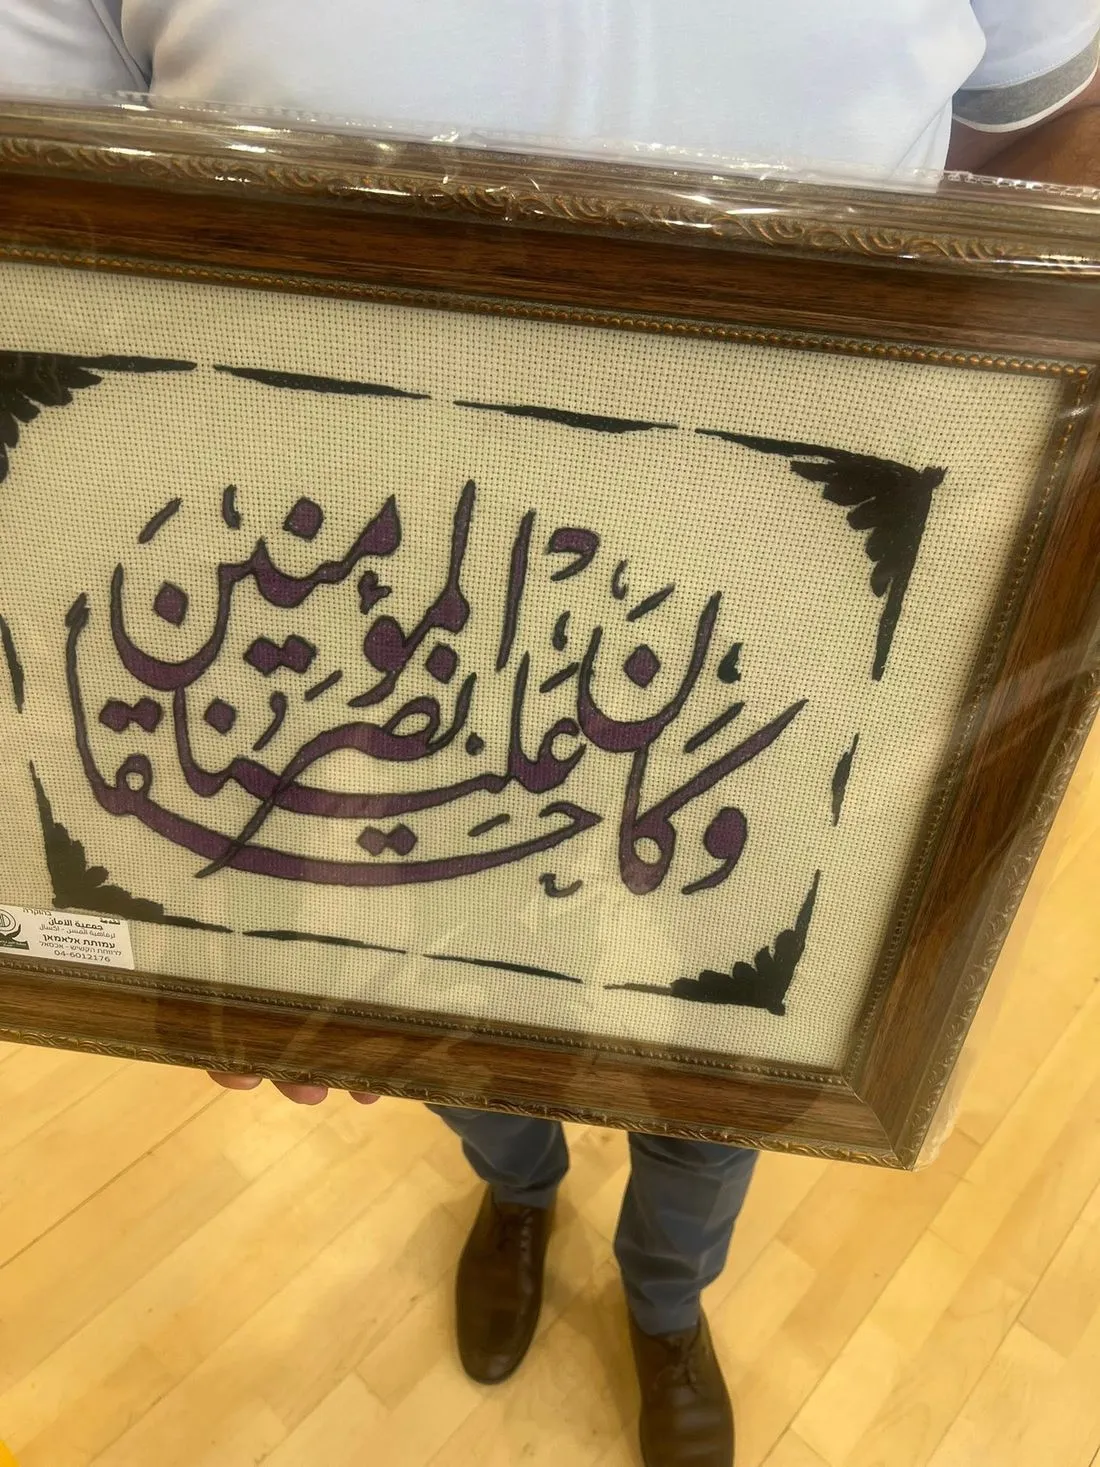 وكان حقا علينا نصر المؤمنين
جمعية الأمان
لرفاهية المسن - اكسال
עמותת אלאמאן
לרווחת הקשיש - אכסאל
04-6012176